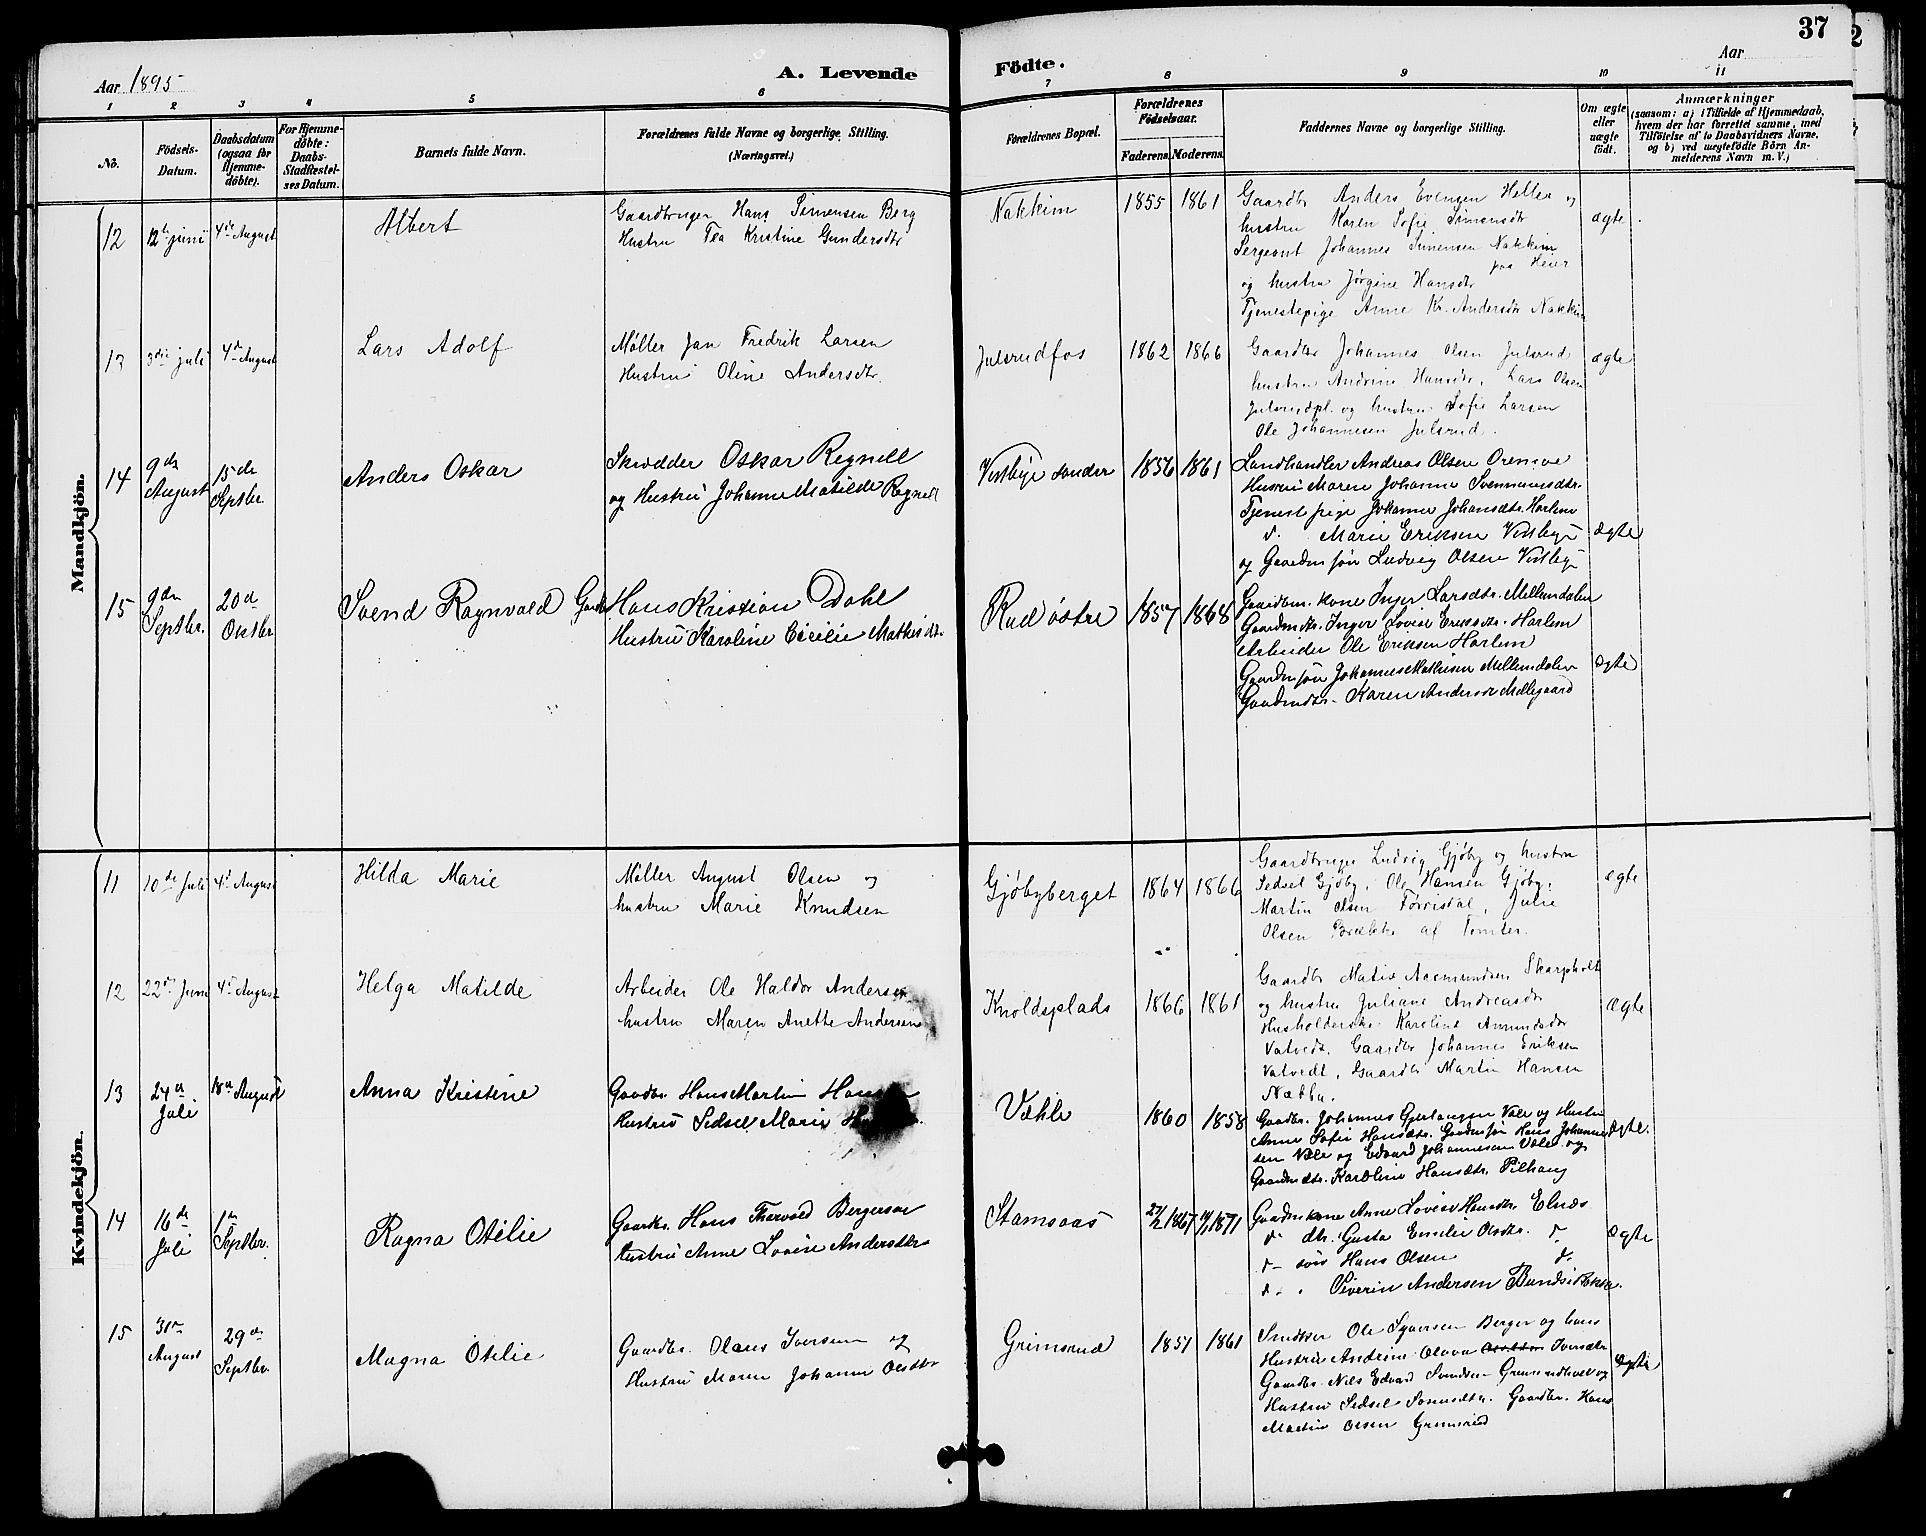 37
2
Aar 1895
A. Levende
Födte.
Aar
1 2 3 4 5 6 7 8 9 10 11
No.
Födsels-Datum.
Daabsdatum (ogsaa for Hjemme-döbte).
For Hjemme-döbte: Daabs-Stadfæstel-ses Datum.
Barnets fulde Navn.
Forældrenes fulde Navne og borgerlige Stilling.
(Næringsvei.)
Forældrenes Bopæl.
Forældrenes Födselsaar.
Faderens. Moderens.
Faddernes Navne og borgerlige Stilling.
Om ægte eller uægte födt.
Anmærkninger
(saasom: a) i Tilfælde af Hjemmedaab,
hvem der har forrettet samme, med
Tilföielse af to Daabsvidners Navne,
og b) ved uægtefödte Börn An-
melderens Navn m. V.)
Mandkjön.
12 12te juni 4de August Albert
Gaardbruger Hans Simensen Berg
Hustru Tea Kristine Gundersdtr
Nakkim 1855 1861
Gaardbr Anders Evensen Heller og
hustru Karen Sofie Simensdtr
Sergeant Johannes Simensen Nakkim
paa Heier
og hustru Jørgine Hansdtr
Tjenestepige Anne Kr. Andersdtr Nakkim
ægte
13 3die juli 4de August Lars Adolf
Møller Jan Fredrik Larsen
Hustru Oline Andersdtr.
Julsrudfos 1862 1866
Gaardbr Johannes Olsen Julsrud
hustru Andrine Hansdtr, Lars Olsen
Julsrudpl. og hustru Sofie Larsen
Ole Johannesen Julsrud.
ægte
14 9de August 15de Septbr. Anders Oskar
Skrædder Oskar Regnell
og Hustru Johanne Matilde Regnell
Vestbye søndre 1856 1861
Landhandler Andreas Olsen
Hustru Maren Johanne
Tjenestpige Johanne Johansdtr. Harlem
d. Marie Eriksen Vestbye
og Gaardm. søn Ludvig Olsen Vestbye
Ægte
15 9de Septbr. 20de Oktbr Svend Ragnvald
Gaardb. Hans Kristian Dahl
Hustru Karoline Cicilie Mathisdtr.
Rud østre 1857 1868
Gaardm. kone Inger Larsdtr. Mellemdalen
Gaardmdtr. Inger Lovise Eriksdtr. Harlem
Arbeider Ole Eriksen Harlem
Gaardm søn Johannes Mathisen Mellemdalen
Gaardmdtr. Karen Andersdtr Mellegaard
Ægte
Kvindekjön.
11 10de Juli 4d August Hilda Marie
Møller August Olsen og
hustru Marie Knudsen
Gjöbyberget 1864 1866
Gaardbruger Ludvig Gjöby og hustru
Sedsel Gjöby, Ole Hansen Gjöby,
Martin Olsen Førrisdal, Julie
Olsen Brække af Tomter.
ægte
12 22de Juni 4d August Helga Matilde
Arbeider Ole Haldor Andersen
hustru Maren Anette Andersen
Knoldsplads 1866 1861
Gaardbr Matis Aasmundsen Skarpholt
og hustru Juliane Andreasdtr
Husholderske Karoline Amundsdtr
Vatvedt, Gaardbr Johannes Eriksen
Vatvedt, Gaardbr Martin Hansen
Ægte
13 24d Juli 18d August Anna Kristine
Gaardbr. Hans Martin
Hustru Sedsel Marie
1860 1858
Gaardbr. Johannes Gjerlaugsen Vale og Hustru
Anne Sofie Hansdtr. Gaardm søn Hans Johanne
sen Vale og Edvard Johannessen Vale og
Gaardmdtr. Karoline Hansdtr. Pilhaug
Ægte.
14 16de Juli 1ste Septbr. Ragna Otilie
Gaardbr. Hans Thorvald Bergersen
Hustru Anne Lovise Andersdtr
Stamsaas 27/2 1867 1871
Gaardm kone Anne Lovise Hansdtr. Elnæs
d. dtr. Gusta Emilie Olsdtr. d.
d. søn Hans Olsen d.
d. Siverin Andersen
Ægte
15 31te August 29de Septbr. Magna Otilie
Gaardbr. Olaus Iversen og
Hustru Maren Johanne Olsdtr
Grimsrud 1857 1861
Snedker Ole Syversen Berger og hans
Hustru Andrine Olava Iversdtr
Gaardbr. Nils Edvard Svendsen Grimsrudhvelv og
Hustru Sedsel Gaardbr. Hans
Martin Olsen Grimsrud
Ægte